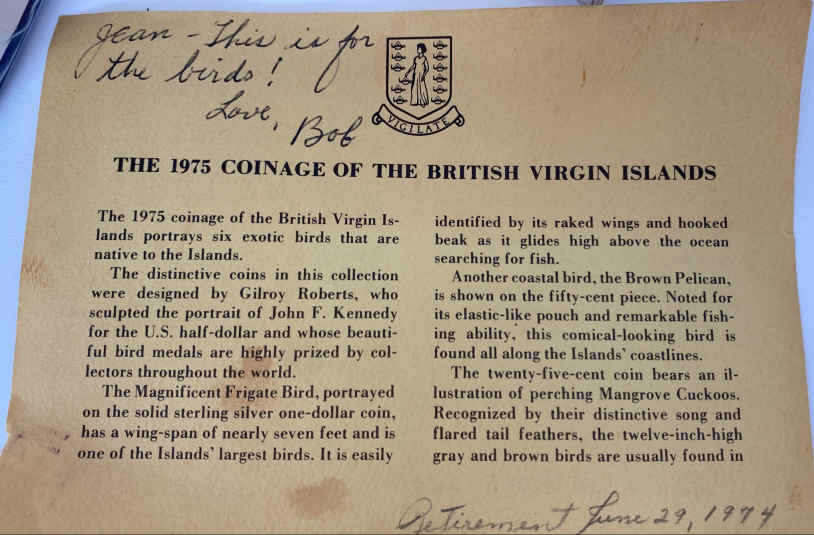 Jean - This is for
the birds!
Love,
Bob
VIGILATE
THE 1975 COINAGE OF THE BRITISH VIRGIN ISLANDS
The 1975 coinage of the British Virgin Is-
lands portrays six exotic birds that are
native to the Islands.
The distinctive coins in this collection
were designed by Gilroy Roberts, who
sculpted the portrait of John F. Kennedy
for the U.S. half-dollar and whose beauti-
ful bird medals are highly prized by col-
lectors throughout the world.
The Magnificent Frigate Bird, portrayed
on the solid sterling silver one-dollar coin,
has a wing-span of nearly seven feet and is
one of the Islands' largest birds. It is easily
identified by its raked wings and hooked
beak as it glides high above the ocean
searching for fish.
Another coastal bird, the Brown Pelican,
is shown on the fifty-cent piece. Noted for
its elastic-like pouch and remarkable fish-
ing ability, this comical-looking bird is
found all along the Islands' coastlines.
The twenty-five-cent coin bears an il-
lustration of perching Mangrove Cuckoos.
Recognized by their distinctive song and
flared tail feathers, the twelve-inch-high
gray and brown birds are usually found in
Retirement June 29, 1974